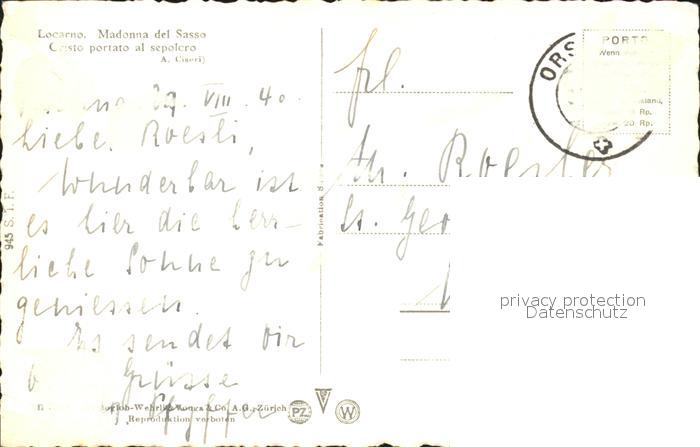 Locarno. Madonna del Sasso
Cristo portato al sepolcro
A. Ciseri)
29. VIII. 40.
Liebe Roesli,
Wunderbar ist
es hier die herr-
liche Sonne zu
geniessen.
Es sendet Dir
Grüsse
Pfyffer
Wehrli Vouga & Co. A.G., Zürich
Reproduktion verboten
PZ
W
945 S. T. F.
Fabrication
Frl.
Th. Roesler
St. Geo
ORS
PORTO
Wenn
Rp.
20 Rp.
privacy protection
Datenschutz